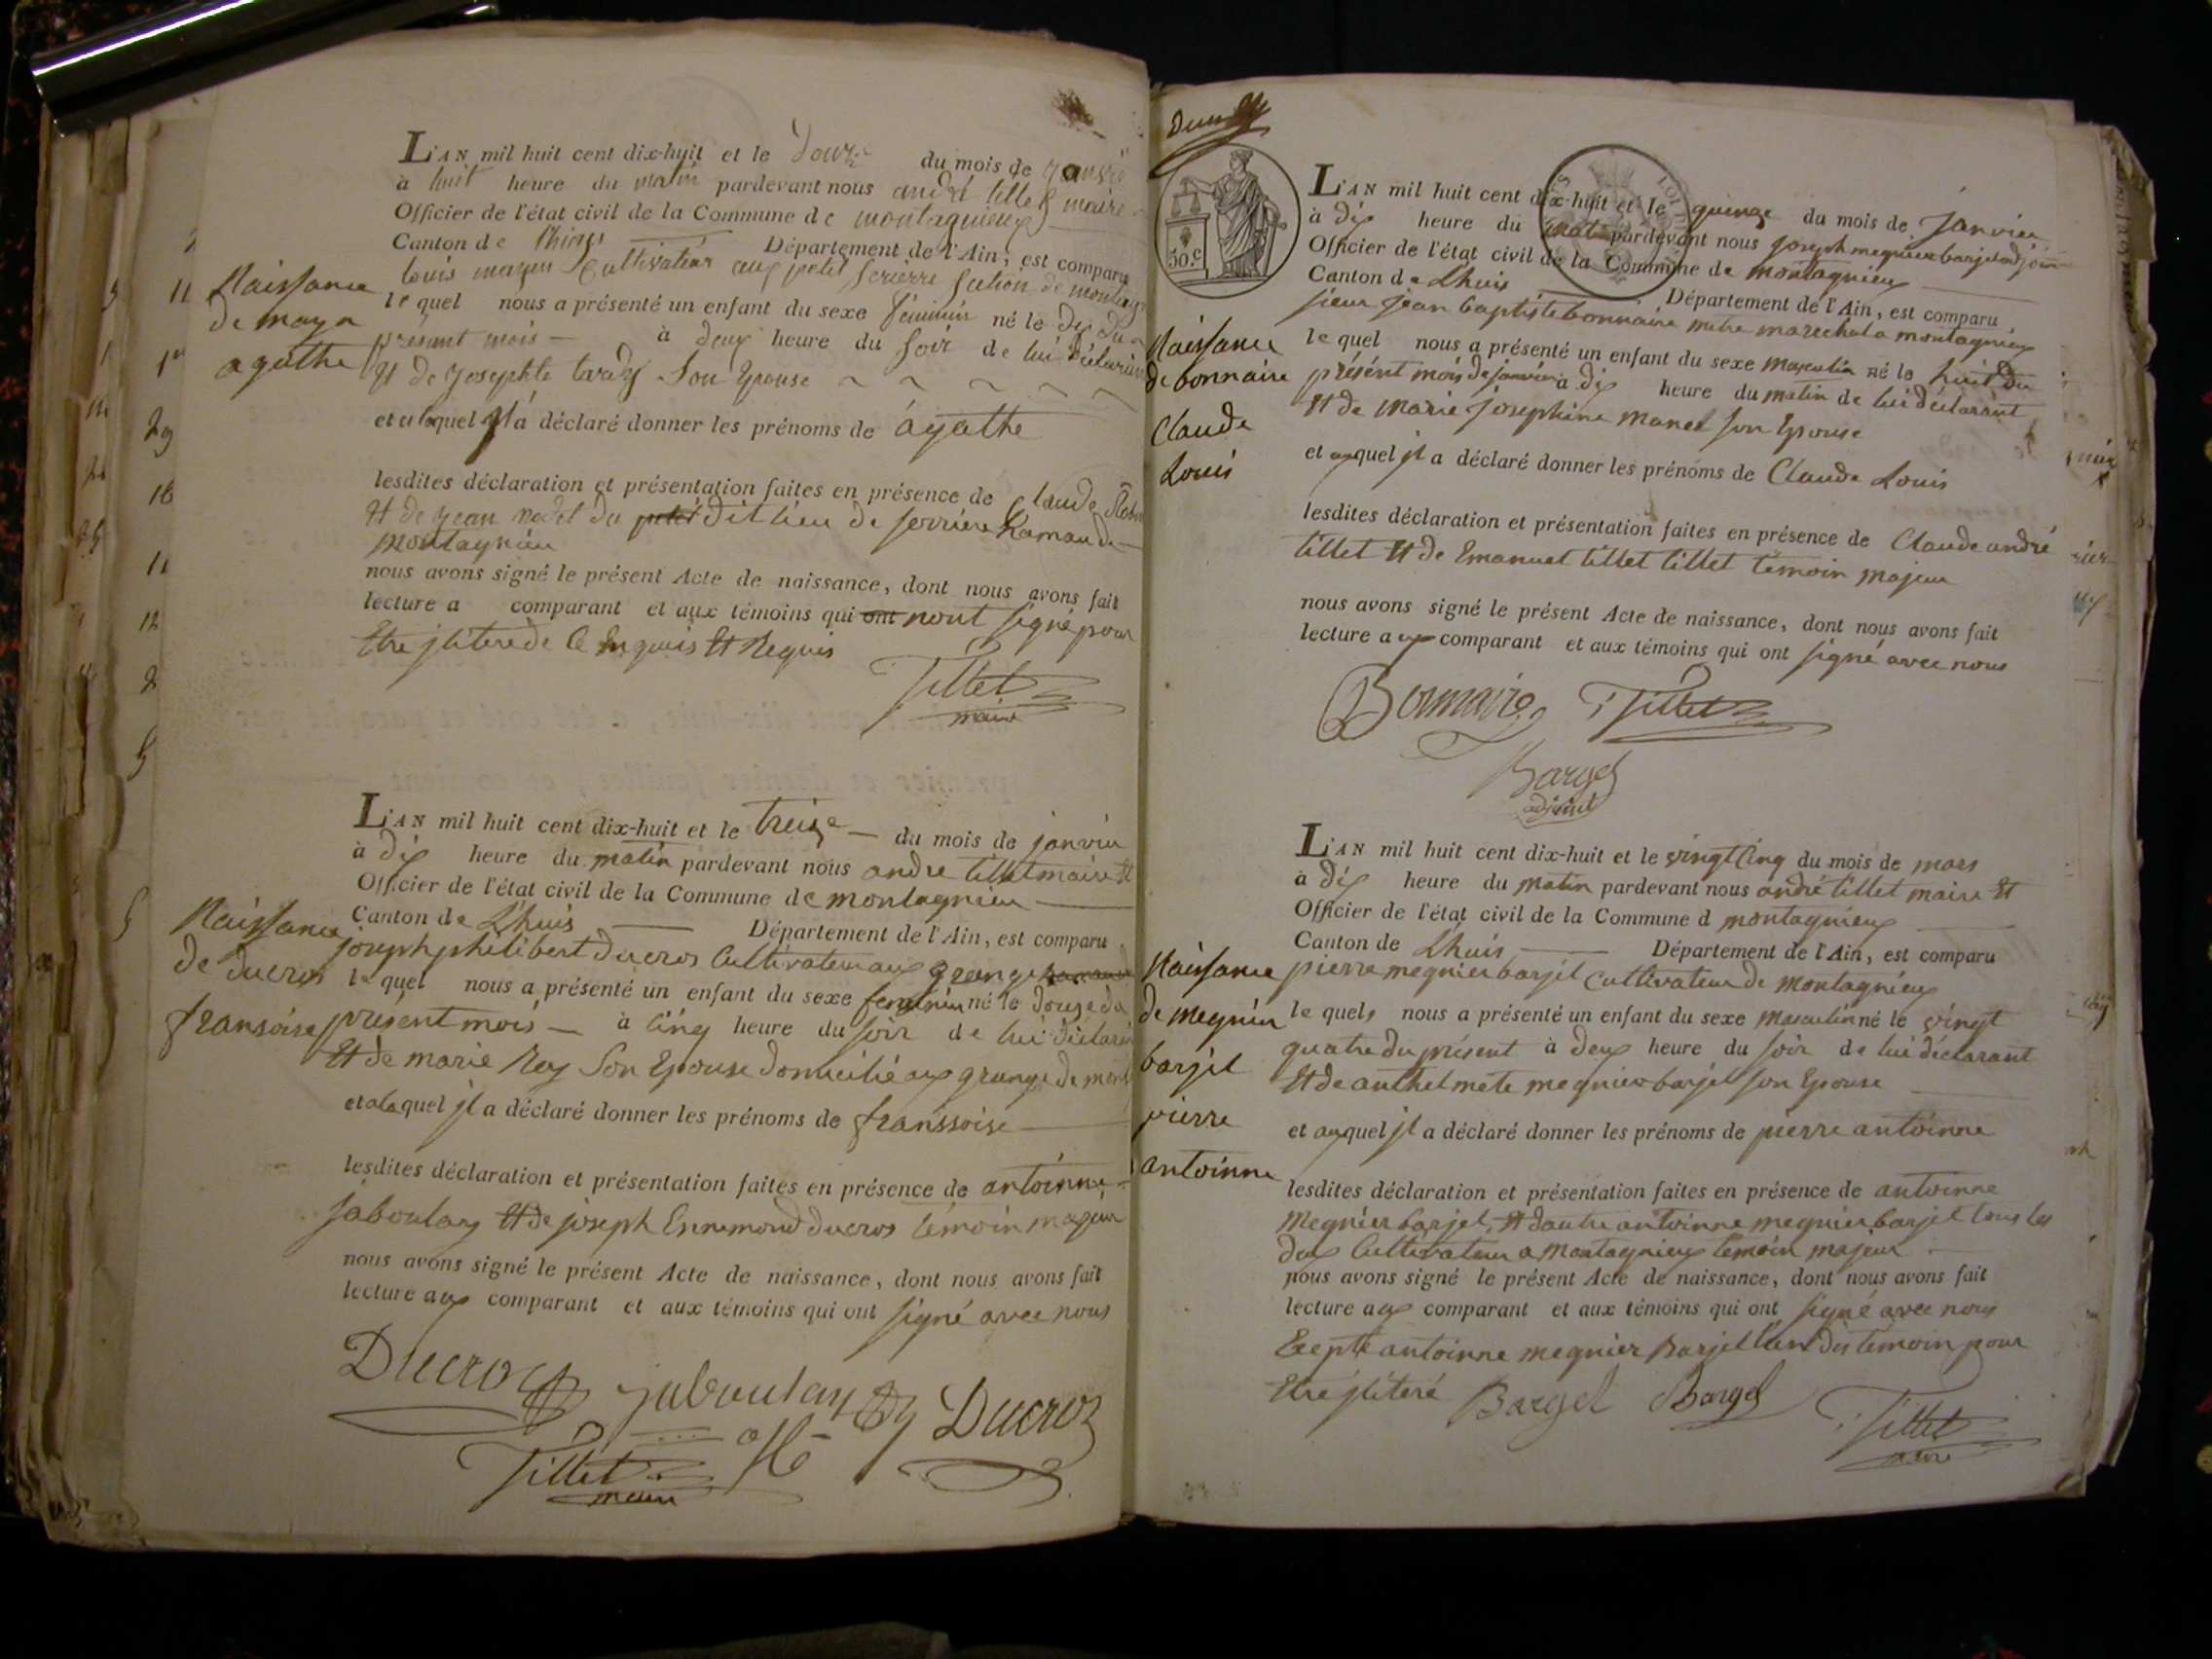 L'AN mil huit cent dix-huit et le douze du mois de janvié
à huit heure du matin pardevant nous andré tillet maire
Officier de l'état civil de la Commune de montagnieux
Canton de Lhuis Département de l'Ain, est comparu
louis mayen Cultivateur aux petit serierre section de montag
le quel nous a présenté un enfant du sexe féminin né le dix du
présent mois à deux heure du soir de lui déclarant
Et de josephte tardy Son Epouse
et a laquel jl a déclaré donner les prénoms de agathe
lesdites déclaration et présentation faites en présence de Claude
Et de jean nodet du petit dit lieu de serriere hamau de
montagnieu
nous avons signé le présent Acte de naissance, dont nous avons fait
lecture a comparant et aux témoins qui ont nont signé pour
Etre jlitere de Ce Enquis Et Requis
Tillet
maire
Naissance
de mayen
agathe
L'AN mil huit cent dix-huit et le treize du mois de janvier
à dix heure du matin pardevant nous andre tillet maire Et
Officier de l'état civil de la Commune de montagnieu
Canton de Lhuis Département de l'Ain, est comparu
joseph philibert ducros Cultivateur aux grange
le quel nous a présenté un enfant du sexe feminin né le douze du
présent mois à cinq heure du soir de lui déclarant
Et de marie Rey Son Epouse domicilié aux grange de mont
et a laquel jl a déclaré donner les prénoms de franssoise
lesdites déclaration et présentation faites en présence de antoinne
jaboulay Et de joseph Ennemond ducros témoin majeur
nous avons signé le présent Acte de naissance, dont nous avons fait
lecture aux comparant et aux témoins qui ont signé avec nous
Ducros jaboulay Ducroz
Tillet
maire
Naissance
de ducros
fransoise
50.C
L'AN mil huit cent dix-huit et le quinze du mois de janvier
à dix heure du matin pardevant nous joseph megnier barjel adjoint
Officier de l'état civil de la Commune de montagnieu
Canton de Lhuis Département de l'Ain, est comparu
sieur jean baptiste bonnaire metre marechal a montagnieu
le quel nous a présenté un enfant du sexe masculin né le huit du
présent mois de janvier à dix heure du matin de lui déclarant
Et de marie josephine manel son Epouse
et auquel jl a déclaré donner les prénoms de Claude Louis
lesdites déclaration et présentation faites en présence de Claude andré
tillet Et de Emanuel tillet tillet témoin majeur
nous avons signé le présent Acte de naissance, dont nous avons fait
lecture aux comparant et aux témoins qui ont signé avec nous
Bonnaire Tillet
Bargel
adjoint
Naissance
de bonnaire
Claude
Louis
L'AN mil huit cent dix-huit et le vingt Cinq du mois de mars
à dix heure du matin pardevant nous andré tillet maire Et
Officier de l'état civil de la Commune d montagnieux
Canton de Lhuis Département de l'Ain, est comparu
pierre megnier barjel Cultivateur de montagnieu
le quel nous a présenté un enfant du sexe masculin né le vingt
quatre du présent à deux heure du soir de lui déclarant
Et de anthelmete megnier barjel son Epouse
et auquel jl a déclaré donner les prénoms de pierre antoinne
lesdites déclaration et présentation faites en présence de antoinne
megnier barjel, Et dautre antoinne megnier barjel tous les
deux Cultivateur a montagnieux temoin majeur
nous avons signé le présent Acte de naissance, dont nous avons fait
lecture aux comparant et aux témoins qui ont signé avec nous
Exepté antoinne megnier Barjel l'un des temoin pour
Etre jliteré Bargel Bargel Tillet
maire
Naissance
de megnier
barjel
pierre
antoinne